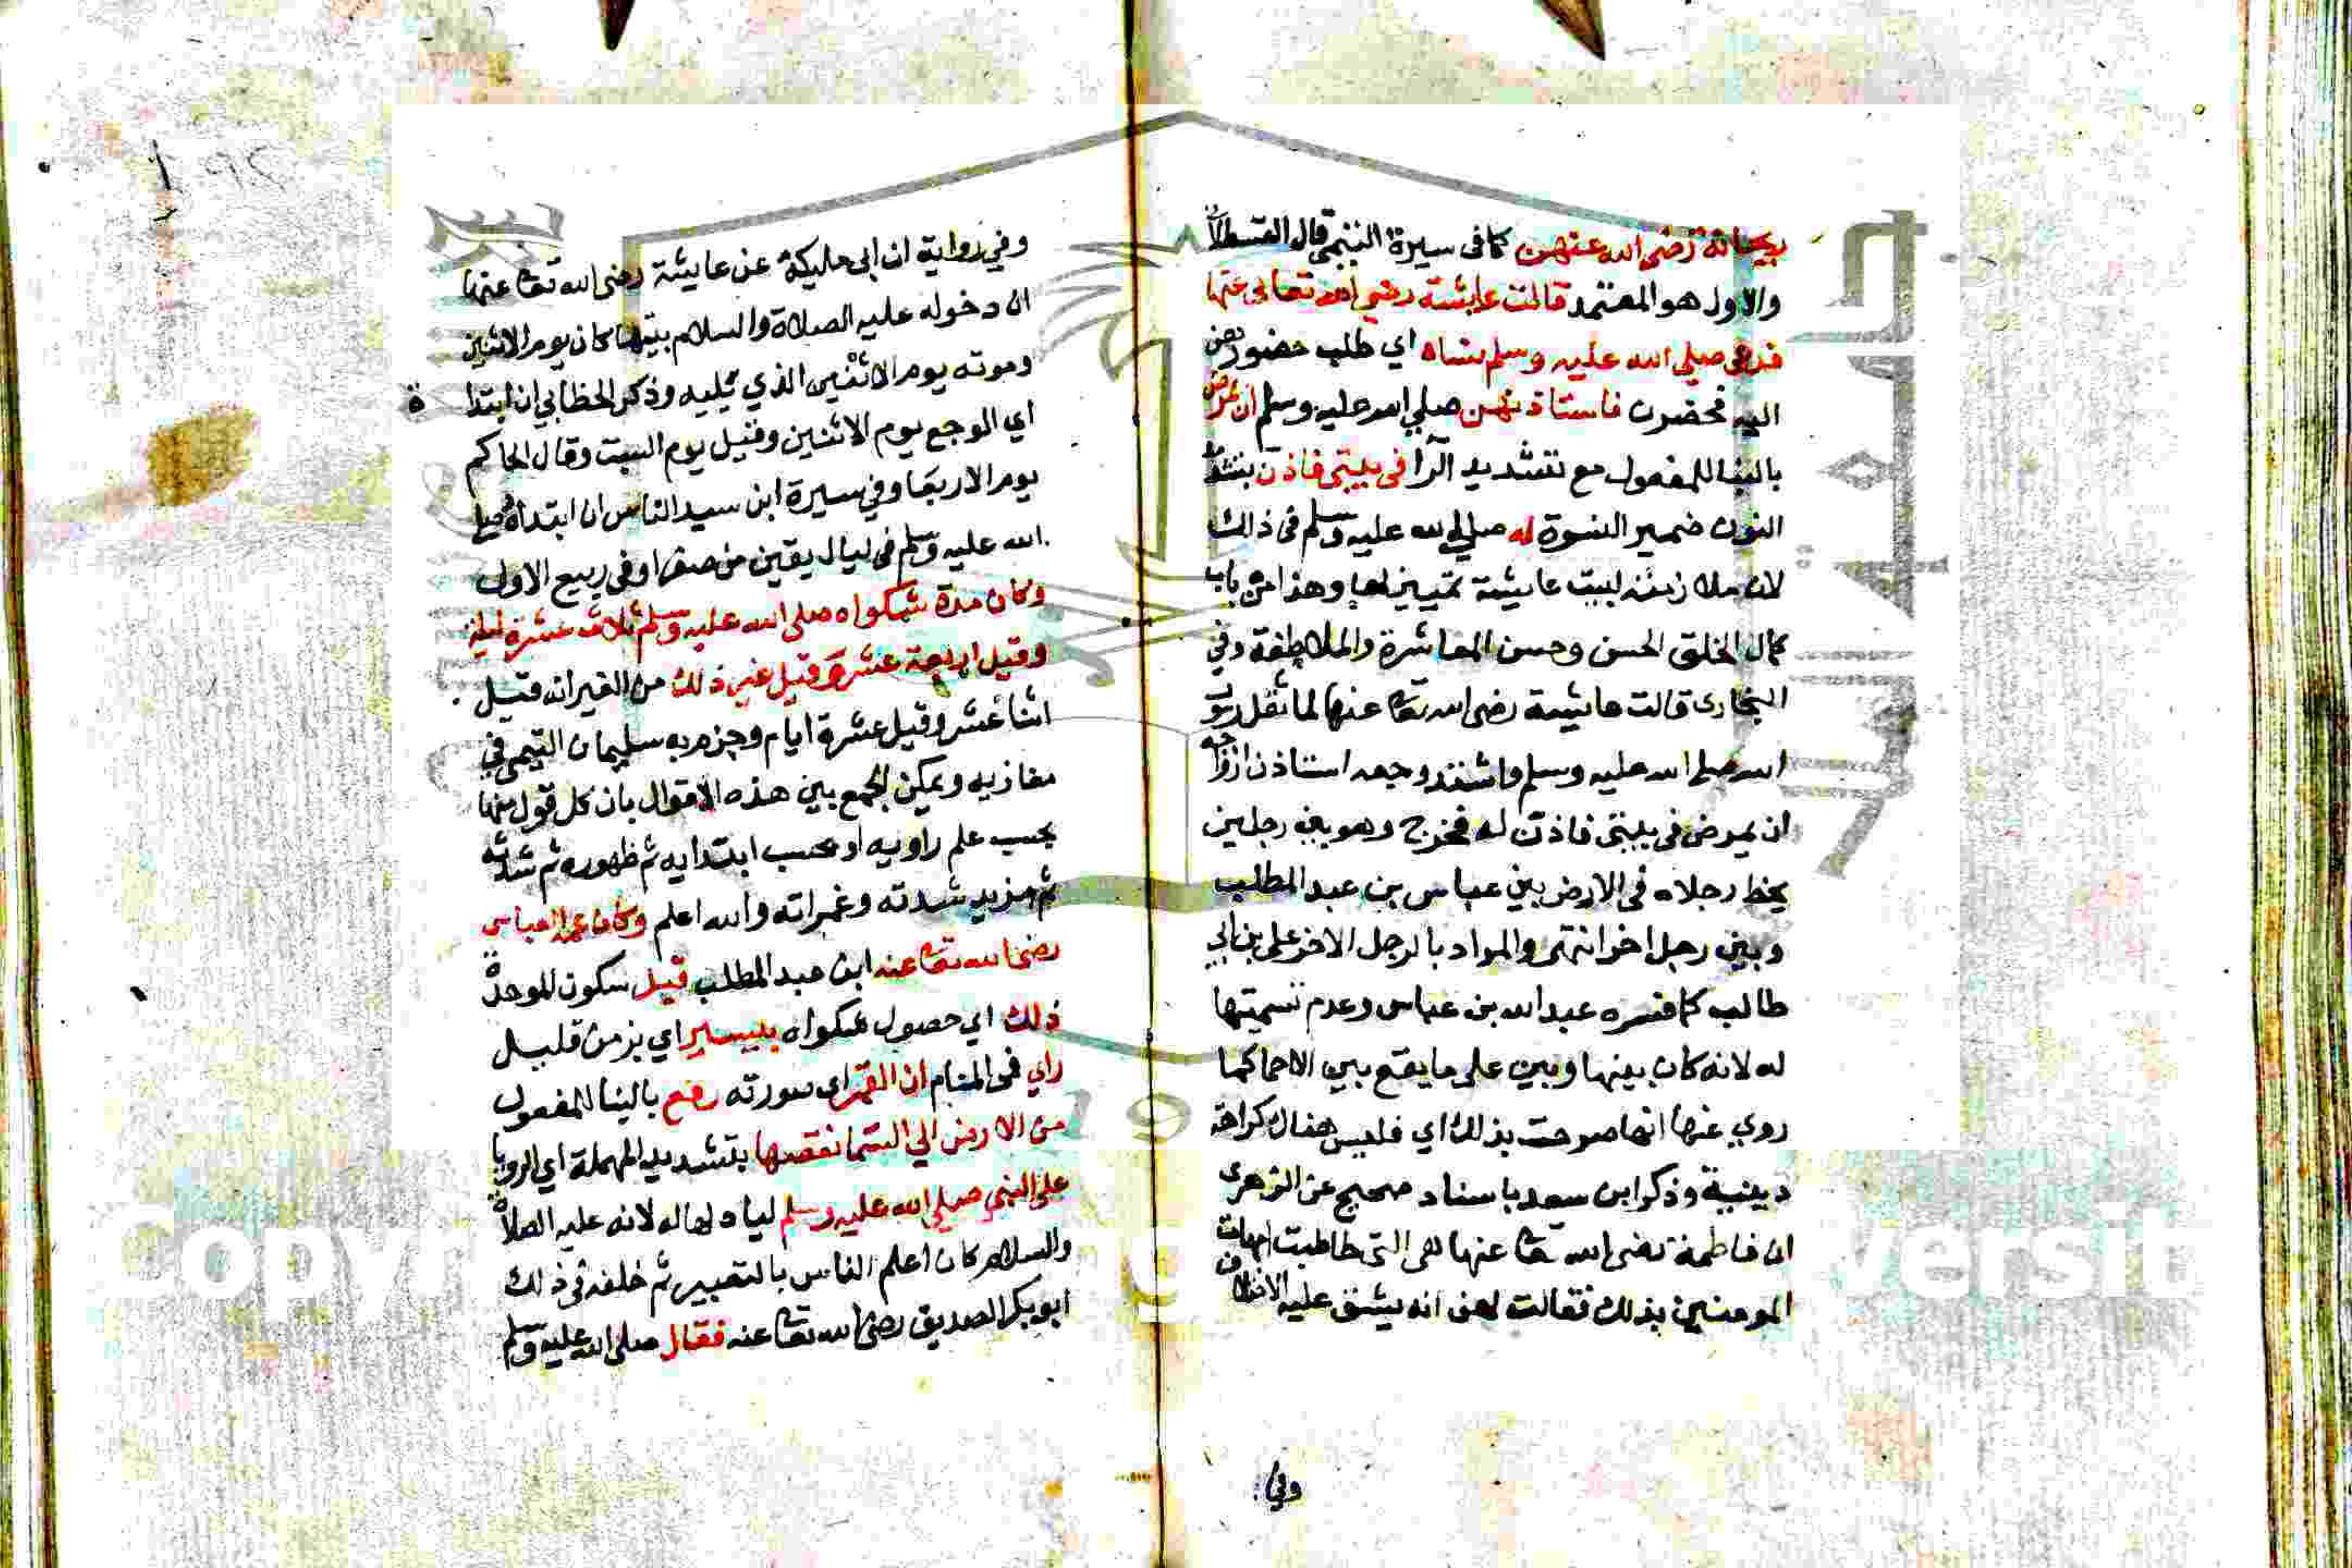 ريحانة رضي الله عنهن كما في سيرة التيمي قال القسطلاني
والاول هو المعتمد قالت عايشة رضي الله تعالى عنها
فدعى صلي الله عليه وسلم نساه اي طلب حضورهن
اليه فحضرن فاستاذنهن صلي الله عليه وسلم ان يمرض
بالبنا للمفعول مع تشديد الرا في بيتي فاذن بتشديد
النون ضمير النسوة له صلي الله عليه وسلم في ذالك
لان ملازمته لبيت عايشة تمييز لها وهذا من باب
كمال الخلق الحسن وحسن المعاشرة والملاطفة وفي
البخاري قالت عايشة رضي الله تعا عنها لما ثقل رسول
الله صلي الله عليه وسلم واشتد وجعه استاذن ازواجه
ان يمرض في بيتي فاذن له فخرج وهو بين رجلين
يخط رجلاه في الارض بين عباس بن عبد المطلب
وبين رجل اخر انتهى والمراد بالرجل الاخر على بن ابي
طالب كما فسره عبد الله بن عباس وعدم تسميتها
له لانه كان بينها وبين على ما يقع بين الاحما كما
روي عنها انها صرحت بذلك اي فليس هناك كراهة
دينية وذكر ابن سعد باسناد صحيح عن الزهري
ان فاطمة رضي الله تعا عنها هي التي خاطبت امهات
المومنين بذلك فقالت لهن انه يشق عليه الاختلاف
وفي
وفي رواية ابن ابي مليكة عن عايشة رضي الله تعا عنها
ان دخوله عليه الصلاة والسلام بيتها كان يوم الاثنين
وموته يوم الاثنين الذي يليه وذكر الخطابي ان ابتداة
اي الوجع يوم الاثنين وقيل يوم السبت وقال الحاكم
يوم الاربعا وفي سيرة ابن سيد الناس ان ابتداه صلي
الله عليه وسلم في ليال بقين من صفر او في ربيع الاول
وكان مدة شكواه صلي الله عليه وسلم ثلاث عشرة ليلة
وقيل اربعة عشرة وقيل غير ذلك من الغير انه قيل
اثنا عشر وقيل عشرة ايام وجزم به سليمان التيمي في
مغازيه ويمكن الجمع بين هذه الاقوال بان كل قول منها
بحسب علم راويه او بحسب ابتدايه ثم ظهوره ثم شدته
ثم مزيد شدته وغمراته والله اعلم وكان عمه العباس
رضي الله تعا عنه ابن عبد المطلب قبل سكون الموحدة
ذلك اي حصول شكواه بيسير اي بزمن قليل
راي في المنام ان القمر اي صورته رفع بالبنا للمفعول
من الارض الي السما فقصها بتشديد المهملة اي الرويا
على النبي صلي الله عليه وسلم لياولها له لانه عليه الصلاة
والسلام كان اعلم الناس بالتعبير ثم خلفه في ذلك
ابو بكر الصديق رضي الله تعا عنه فقال صلي الله عليه وسلم